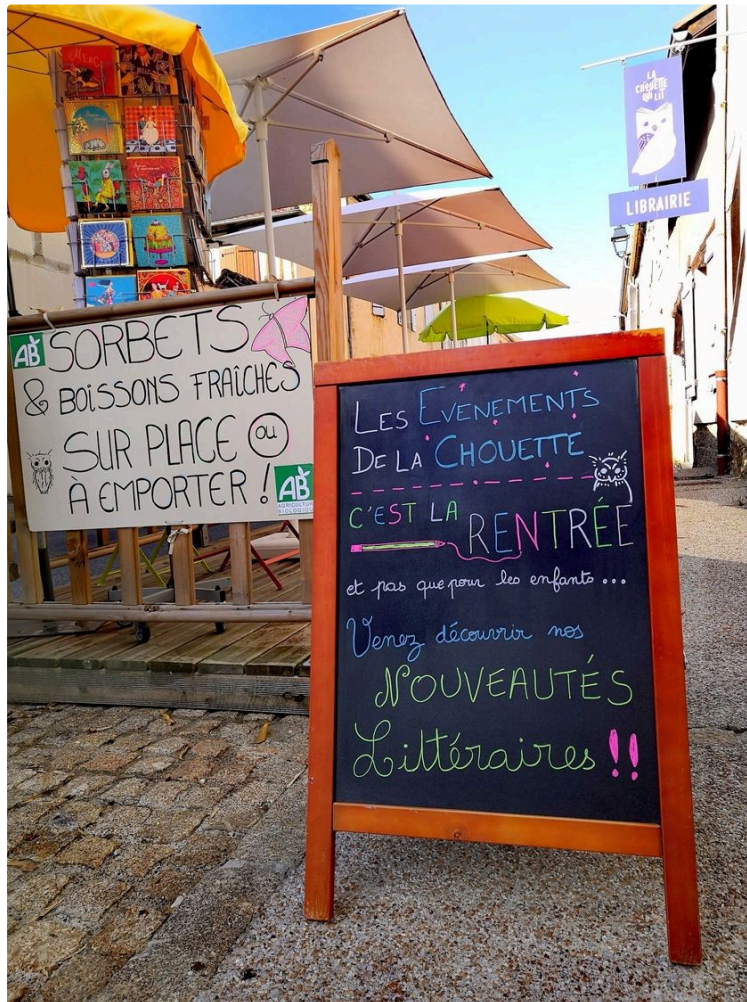 LA
CHOUETTE
QUI LIT
LIBRAIRIE
MERCI
AB SORBETS
& BOISSONS FRAÎCHES
SUR PLACE OU
À EMPORTER !
AB
AGRICULTURE
BIOLOGIQUE
LES EVÈNEMENTS
DE LA CHOUETTE
C'EST LA RENTRÉE
et pas que pour les enfants ...
Venez découvrir nos
NOUVEAUTÉS
Littéraires !!